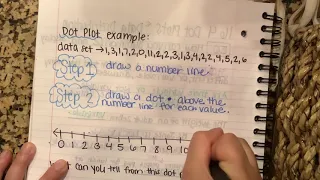 Dot Plot example:
data set → 1,3,1,7,2,0,11,2,2,3,1,3,4,2,2,4,5,2,6
Step 1: draw a number line.
Step 2: draw a dot • above the
number line for each value.
0 1 2 3 4 5 6 7 8 9 10
can you tell from this dot